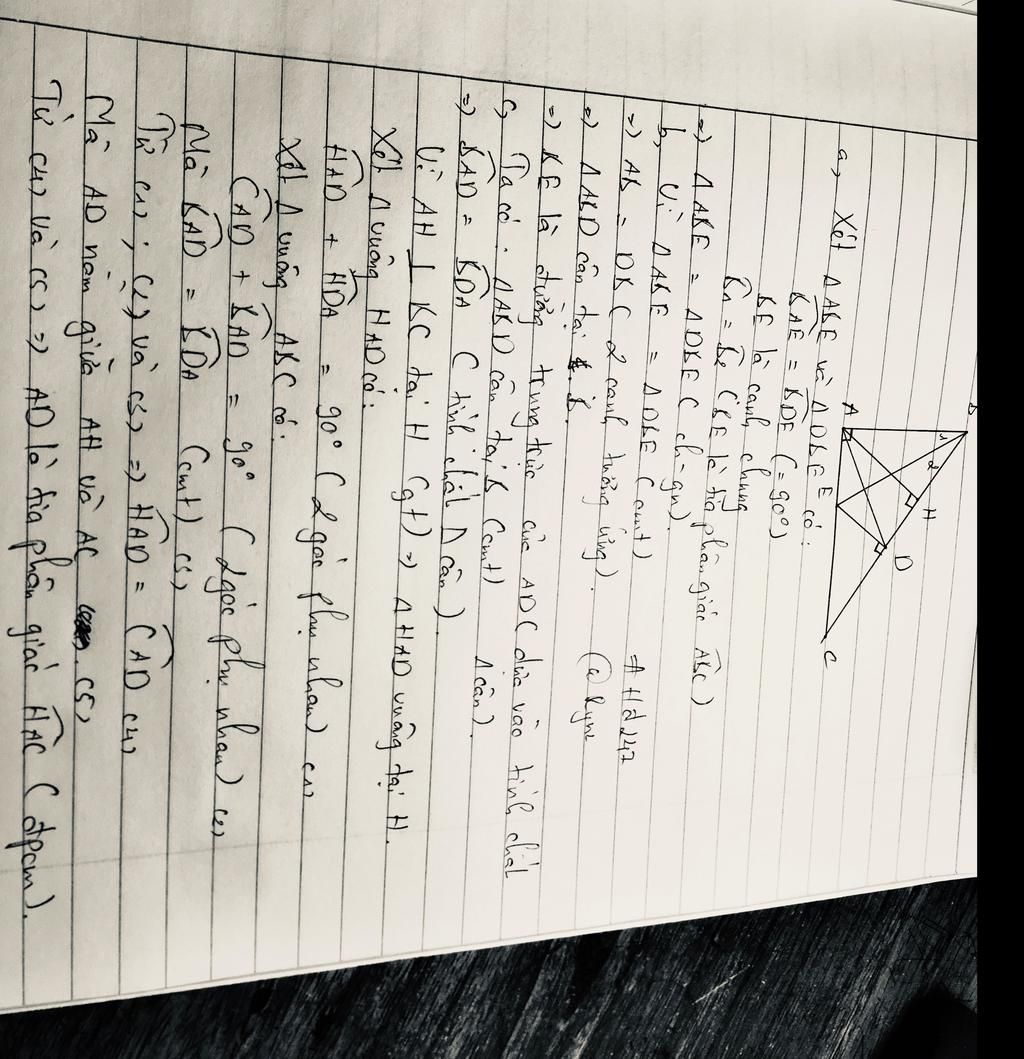 B
1 2
H
D
A
E
C
a, Xét ΔAKE và ΔDKE có:
KAE = KDE (= 90°)
KE là cạnh chung
K1 = K2 (KE là tia phân giác AKC)
=> ΔAKE = ΔDKE (ch-gn).
b, Vì ΔAKE = ΔDKE (cmt)
=> AK = DK (2 cạnh tương ứng).
=> ΔAKD cân tại K.
=> KE là đường trung trực của AD (dựa vào tính chất Δ cân).
c, Ta có: ΔAKD cân tại K (cmt)
=> KAD = KDA (tính chất Δ cân).
Vì AH ⊥ KC tại H (gt) => ΔHAD vuông tại H.
Xét Δ vuông HAD có:
HAD + HDA = 90° (2 góc phụ nhau) (1)
Xét Δ vuông AKC có:
CAD + KAD = 90° (2 góc phụ nhau) (2)
Mà KAD = KDA (cmt) (3)
Từ (1); (2) và (3) => HAD = CAD (4)
Mà AD nằm giữa AH và AC (5)
Từ (4) và (5) => AD là tia phân giác HAC (đpcm).